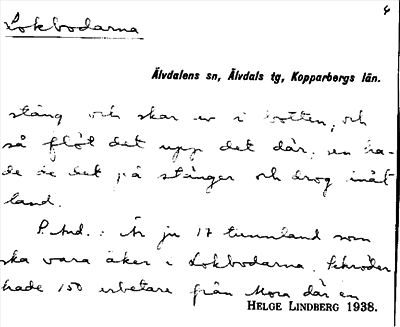 6
Lokbodarna
Älvdalens sn, Älvdals tg, Kopparbergs län.
stång och skar ur i botten, och
så flöt det upp det där, en ha-
de se det på stänger och drog inåt
land.
P. And. : Är ju 17 tunnland som
ska vara åker i Lokbodarna. Schröder
hade 150 arbetare från Mora där en
HELGE LINDBERG 1938.